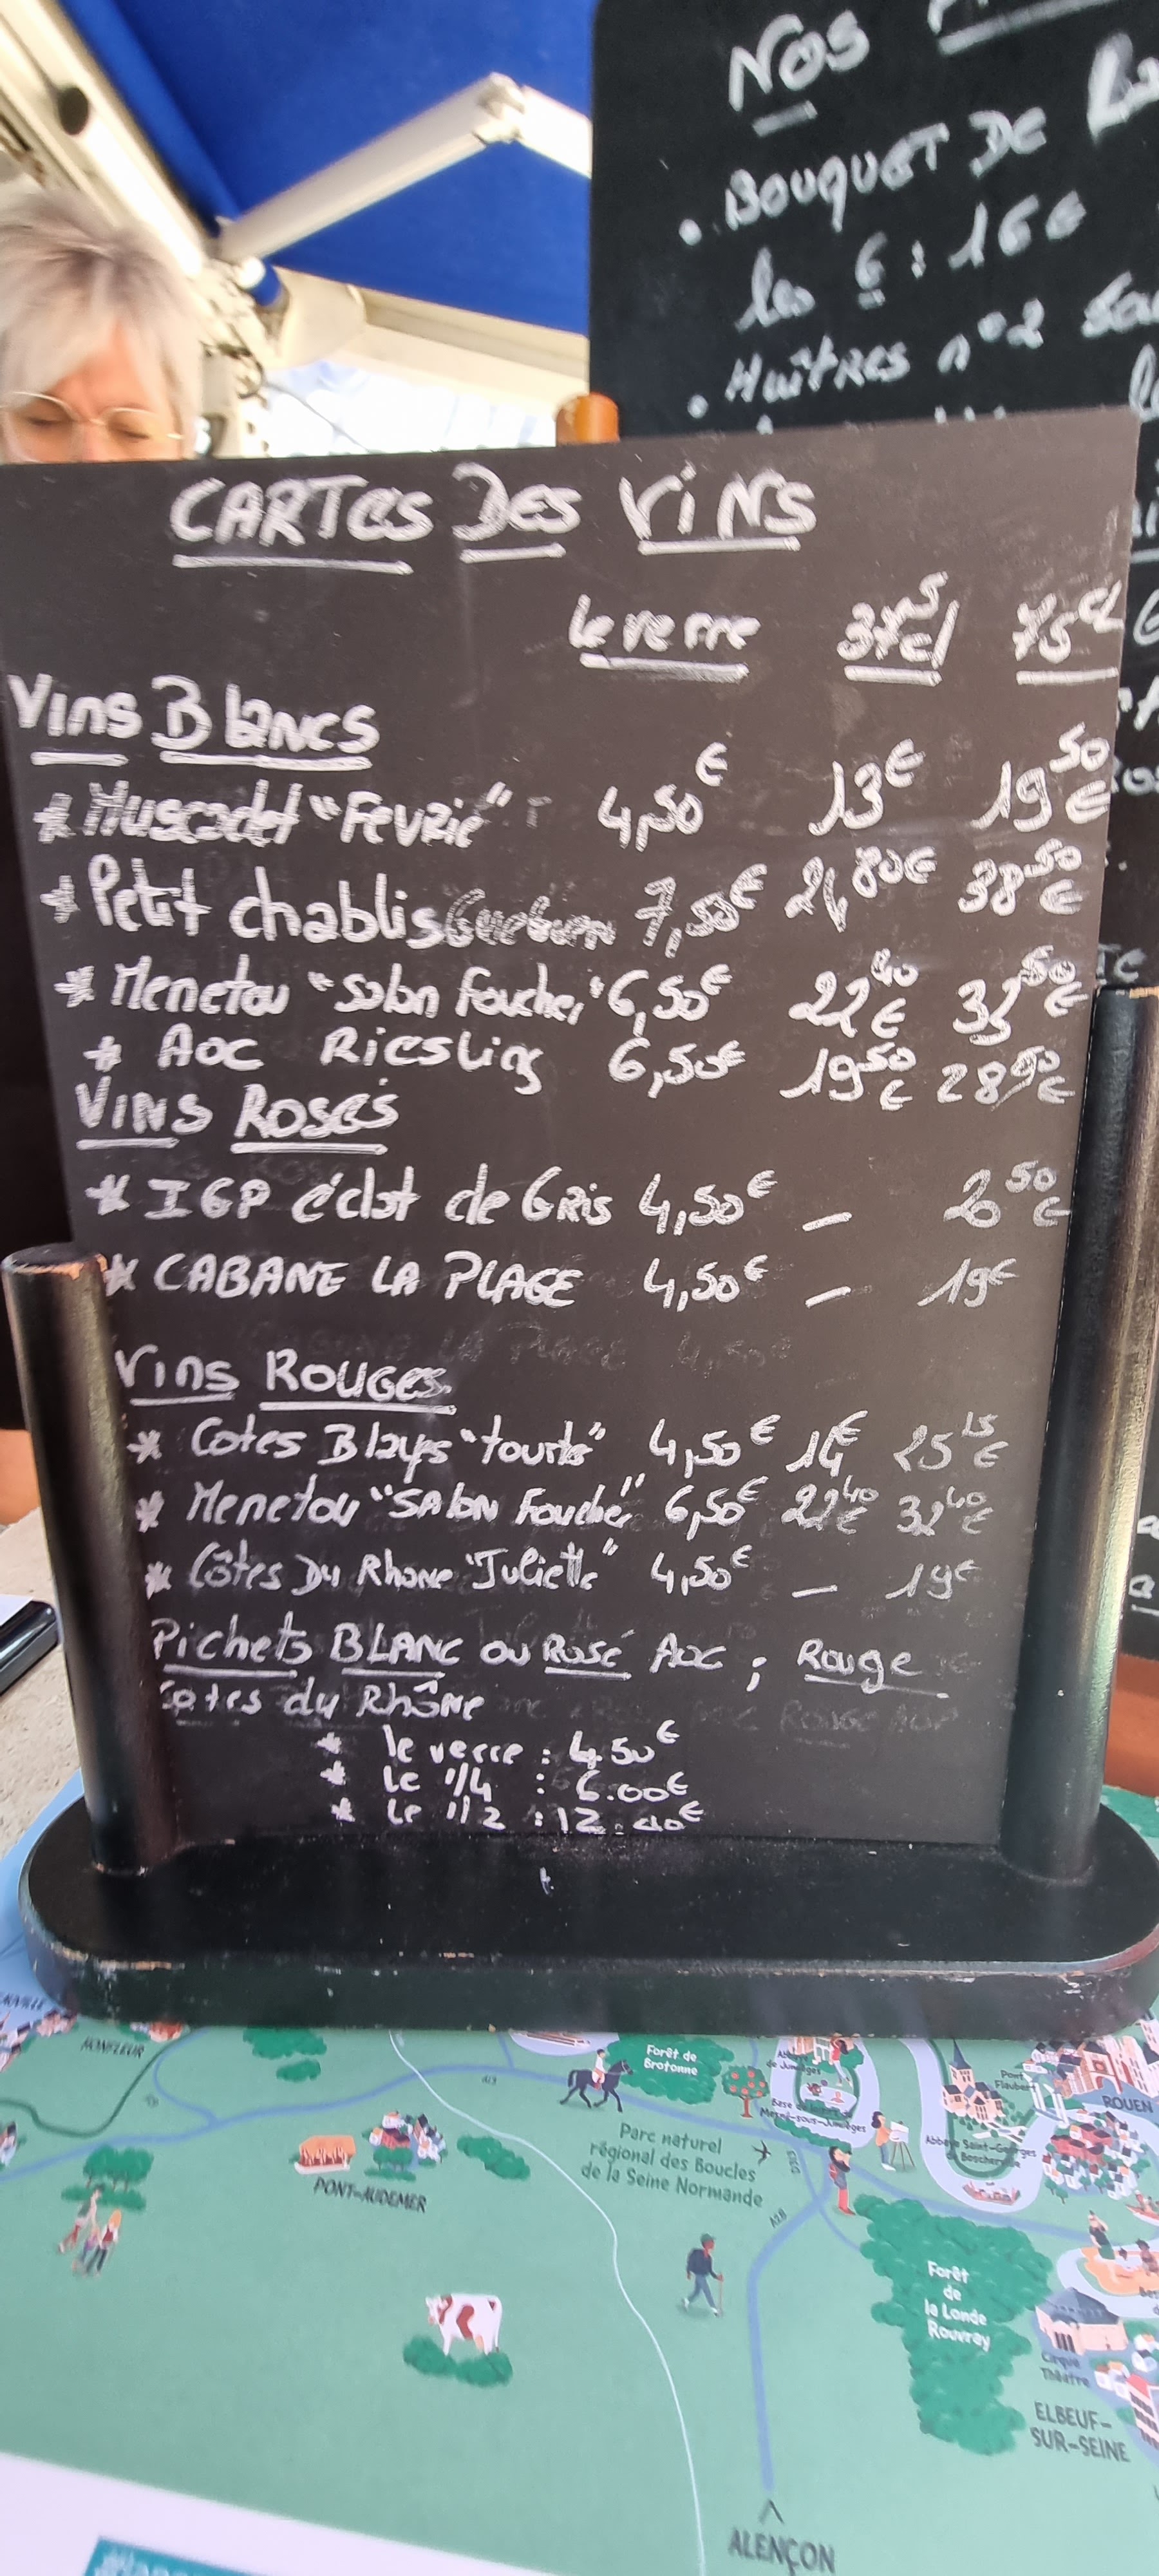 NOS
• BOUQUET DE
les 6 : 16€
• HUÎTRES n°2
CARTES DES VINS
Le verre 37,5cl 75cl
Vins Blancs
* Muscadet "Fevrie" 4,50€ 13€ 19,50€
* Petit chablis 7,50€ 80€ 38,50€
* Menetou "Salon Foucher" 6,50€ 22,40€ 50€
* AOC Riesling 6,50€ 19,50€ 28,50€
VINS ROSÉS
* IGP éclat de GRIS 4,50€ — 50€
* CABANE LA PLAGE 4,50€ — 19€
Vins ROUGES
* Cotes Blays "tourte" 4,50€ 14€ 25,15€
* Menetou "SAlon Fouche" 6,50€ 22,40€ 32,40€
* Côtes Du Rhone "Juliette" 4,50€ — 19€
Pichets BLANC ou Rosé AOC ; Rouge
Cotes du Rhône
* le verre : 4.50€
* Le 1/4 : 6.00€
* Le 1/2 : 12.
HONFLEUR
Forêt de
Brotonne
Pont
Flaubert
ROUEN
Abbaye Saint-Georges
de Boscherville
Parc naturel
régional des Boucles
de la Seine Normande
PONT-AUDEMER
A28
Forêt
de
la Londe
Rouvray
Cirque
Théâtre
ELBEUF-
SUR-SEINE
ALENÇON